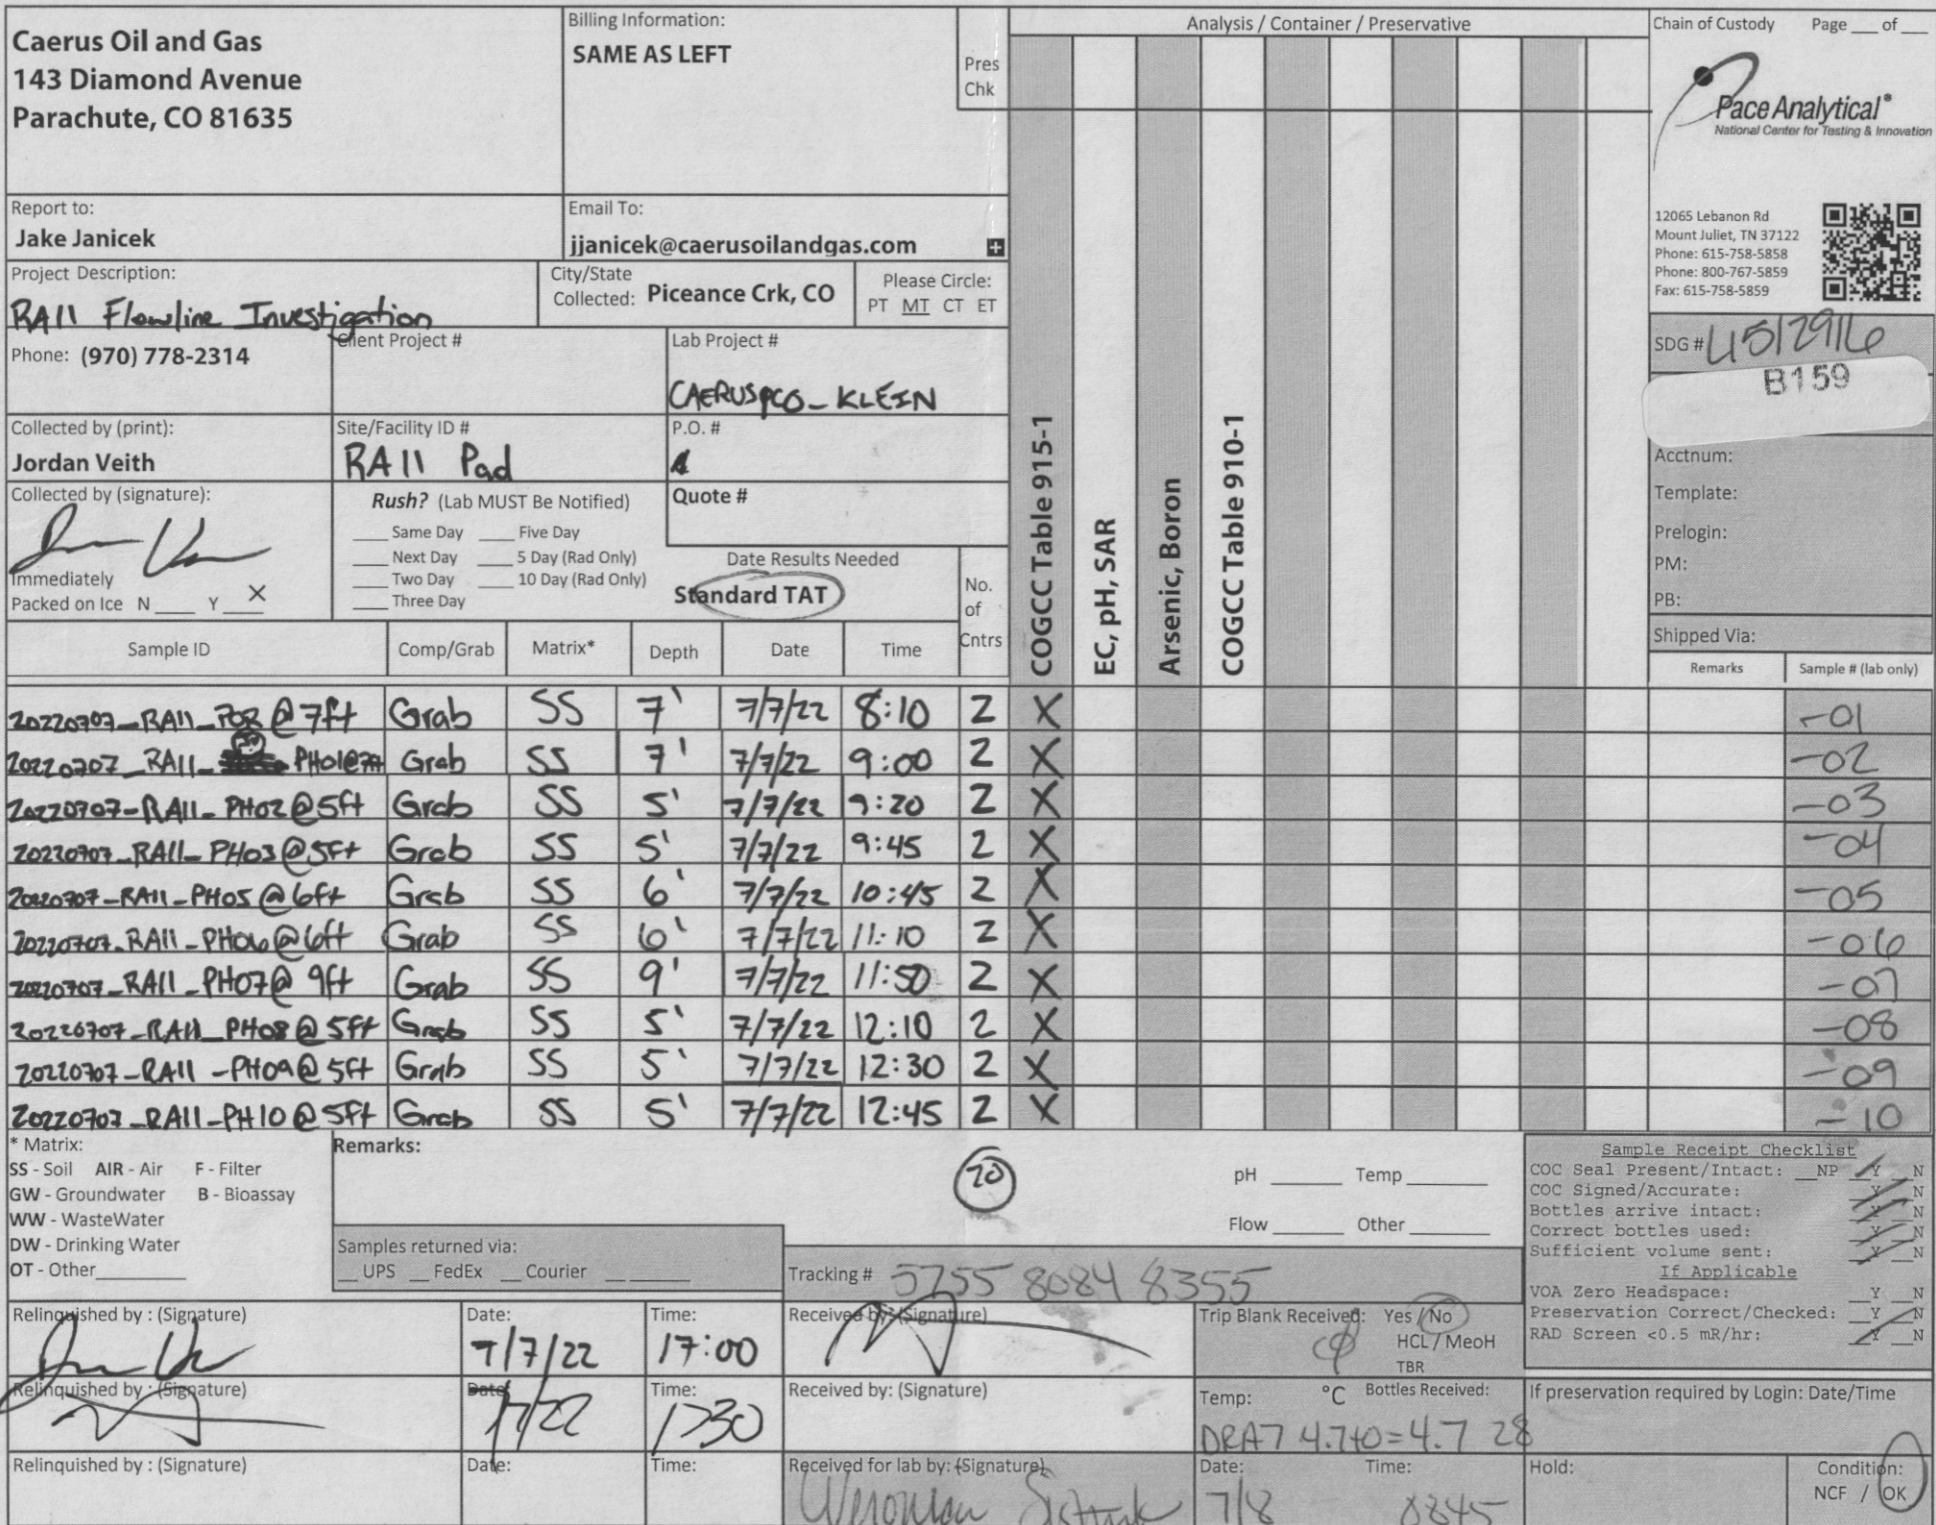 Caerus Oil and Gas
143 Diamond Avenue
Parachute, CO 81635
Billing Information:
SAME AS LEFT
Pres
Chk
Analysis / Container / Preservative
Chain of Custody Page ___ of ___
Pace Analytical®
National Center for Testing & Innovation
12065 Lebanon Rd
Mount Juliet, TN 37122
Phone: 615-758-5858
Phone: 800-767-5859
Fax: 615-758-5859
Report to:
Jake Janicek
Email To:
jjanicek@caerusoilandgas.com
Project Description:
RA11 Flowline Investigation
City/State
Collected: Piceance Crk, CO
Please Circle:
PT MT CT ET
Phone: (970) 778-2314
Client Project #
Lab Project #
CAERUSPCO_KLEIN
SDG #
B159
Collected by (print):
Jordan Veith
Site/Facility ID #
RA11 Pad
P.O. #
Collected by (signature):
Immediately
Packed on Ice N ____ Y ____ X
Rush? (Lab MUST Be Notified)
____ Same Day ____ Five Day
____ Next Day ____ 5 Day (Rad Only)
____ Two Day ____ 10 Day (Rad Only)
____ Three Day
Quote #
Date Results Needed
Standard TAT
No.
of
Cntrs
COGCC Table 915-1
EC, pH, SAR
Arsenic, Boron
COGCC Table 910-1
Acctnum:
Template:
Prelogin:
PM:
PB:
Shipped Via:
Sample ID Comp/Grab Matrix* Depth Date Time Remarks Sample # (lab only)
20220707_RA11_ @ 7ft Grab SS 7' 7/7/22 8:10 2 X -01
20220707_RA11_ PH01@7ft Grab SS 7' 7/7/22 9:00 2 X -02
20220707-RA11-PH02@5ft Grab SS 5' 7/7/22 9:20 2 X -03
20220707_RA11_PH03@5ft Grab SS 5' 7/7/22 9:45 2 X -04
20220707-RA11-PH05@6ft Grab SS 6' 7/7/22 10:45 2 X -05
20220707_RA11_PH06@6ft Grab SS 6' 7/7/22 11:10 2 X -06
20220707_RA11_PH07@9ft Grab SS 9' 7/7/22 11:50 2 X -07
20220707_RA11_PH08@5ft Grab SS 5' 7/7/22 12:10 2 X -08
20220707_RA11_PH09@5ft Grab SS 5' 7/7/22 12:30 2 X -09
20220707_RA11_PH10@5ft Grab SS 5' 7/7/22 12:45 2 X -10
* Matrix:
SS - Soil AIR - Air F - Filter
GW - Groundwater B - Bioassay
WW - WasteWater
DW - Drinking Water
OT - Other__________
Remarks:
20
pH ______ Temp ______
Flow ______ Other ______
Samples returned via:
__ UPS __ FedEx __ Courier __ ______
Tracking # 5755 8084 8355
Sample Receipt Checklist
COC Seal Present/Intact: __NP __Y __N
COC Signed/Accurate: __Y __N
Bottles arrive intact: __Y __N
Correct bottles used: __Y __N
Sufficient volume sent: __Y __N
If Applicable
VOA Zero Headspace: __Y __N
Preservation Correct/Checked: __Y __N
RAD Screen <0.5 mR/hr: __Y __N
Relinquished by : (Signature)
Date:
7/7/22
Time:
17:00
Received by: (Signature)
Trip Blank Received: Yes / No
HCL / MeoH
TBR
Relinquished by : (Signature)
Date:
7/7/22
Time:
1730
Received by: (Signature)
Temp: °C Bottles Received:
DRA7 4.7+0=4.7 28
If preservation required by Login: Date/Time
Relinquished by : (Signature)
Date:
Time:
Received for lab by: (Signature)
Date:
7/8
Time:
0845
Hold:
Condition:
NCF / OK